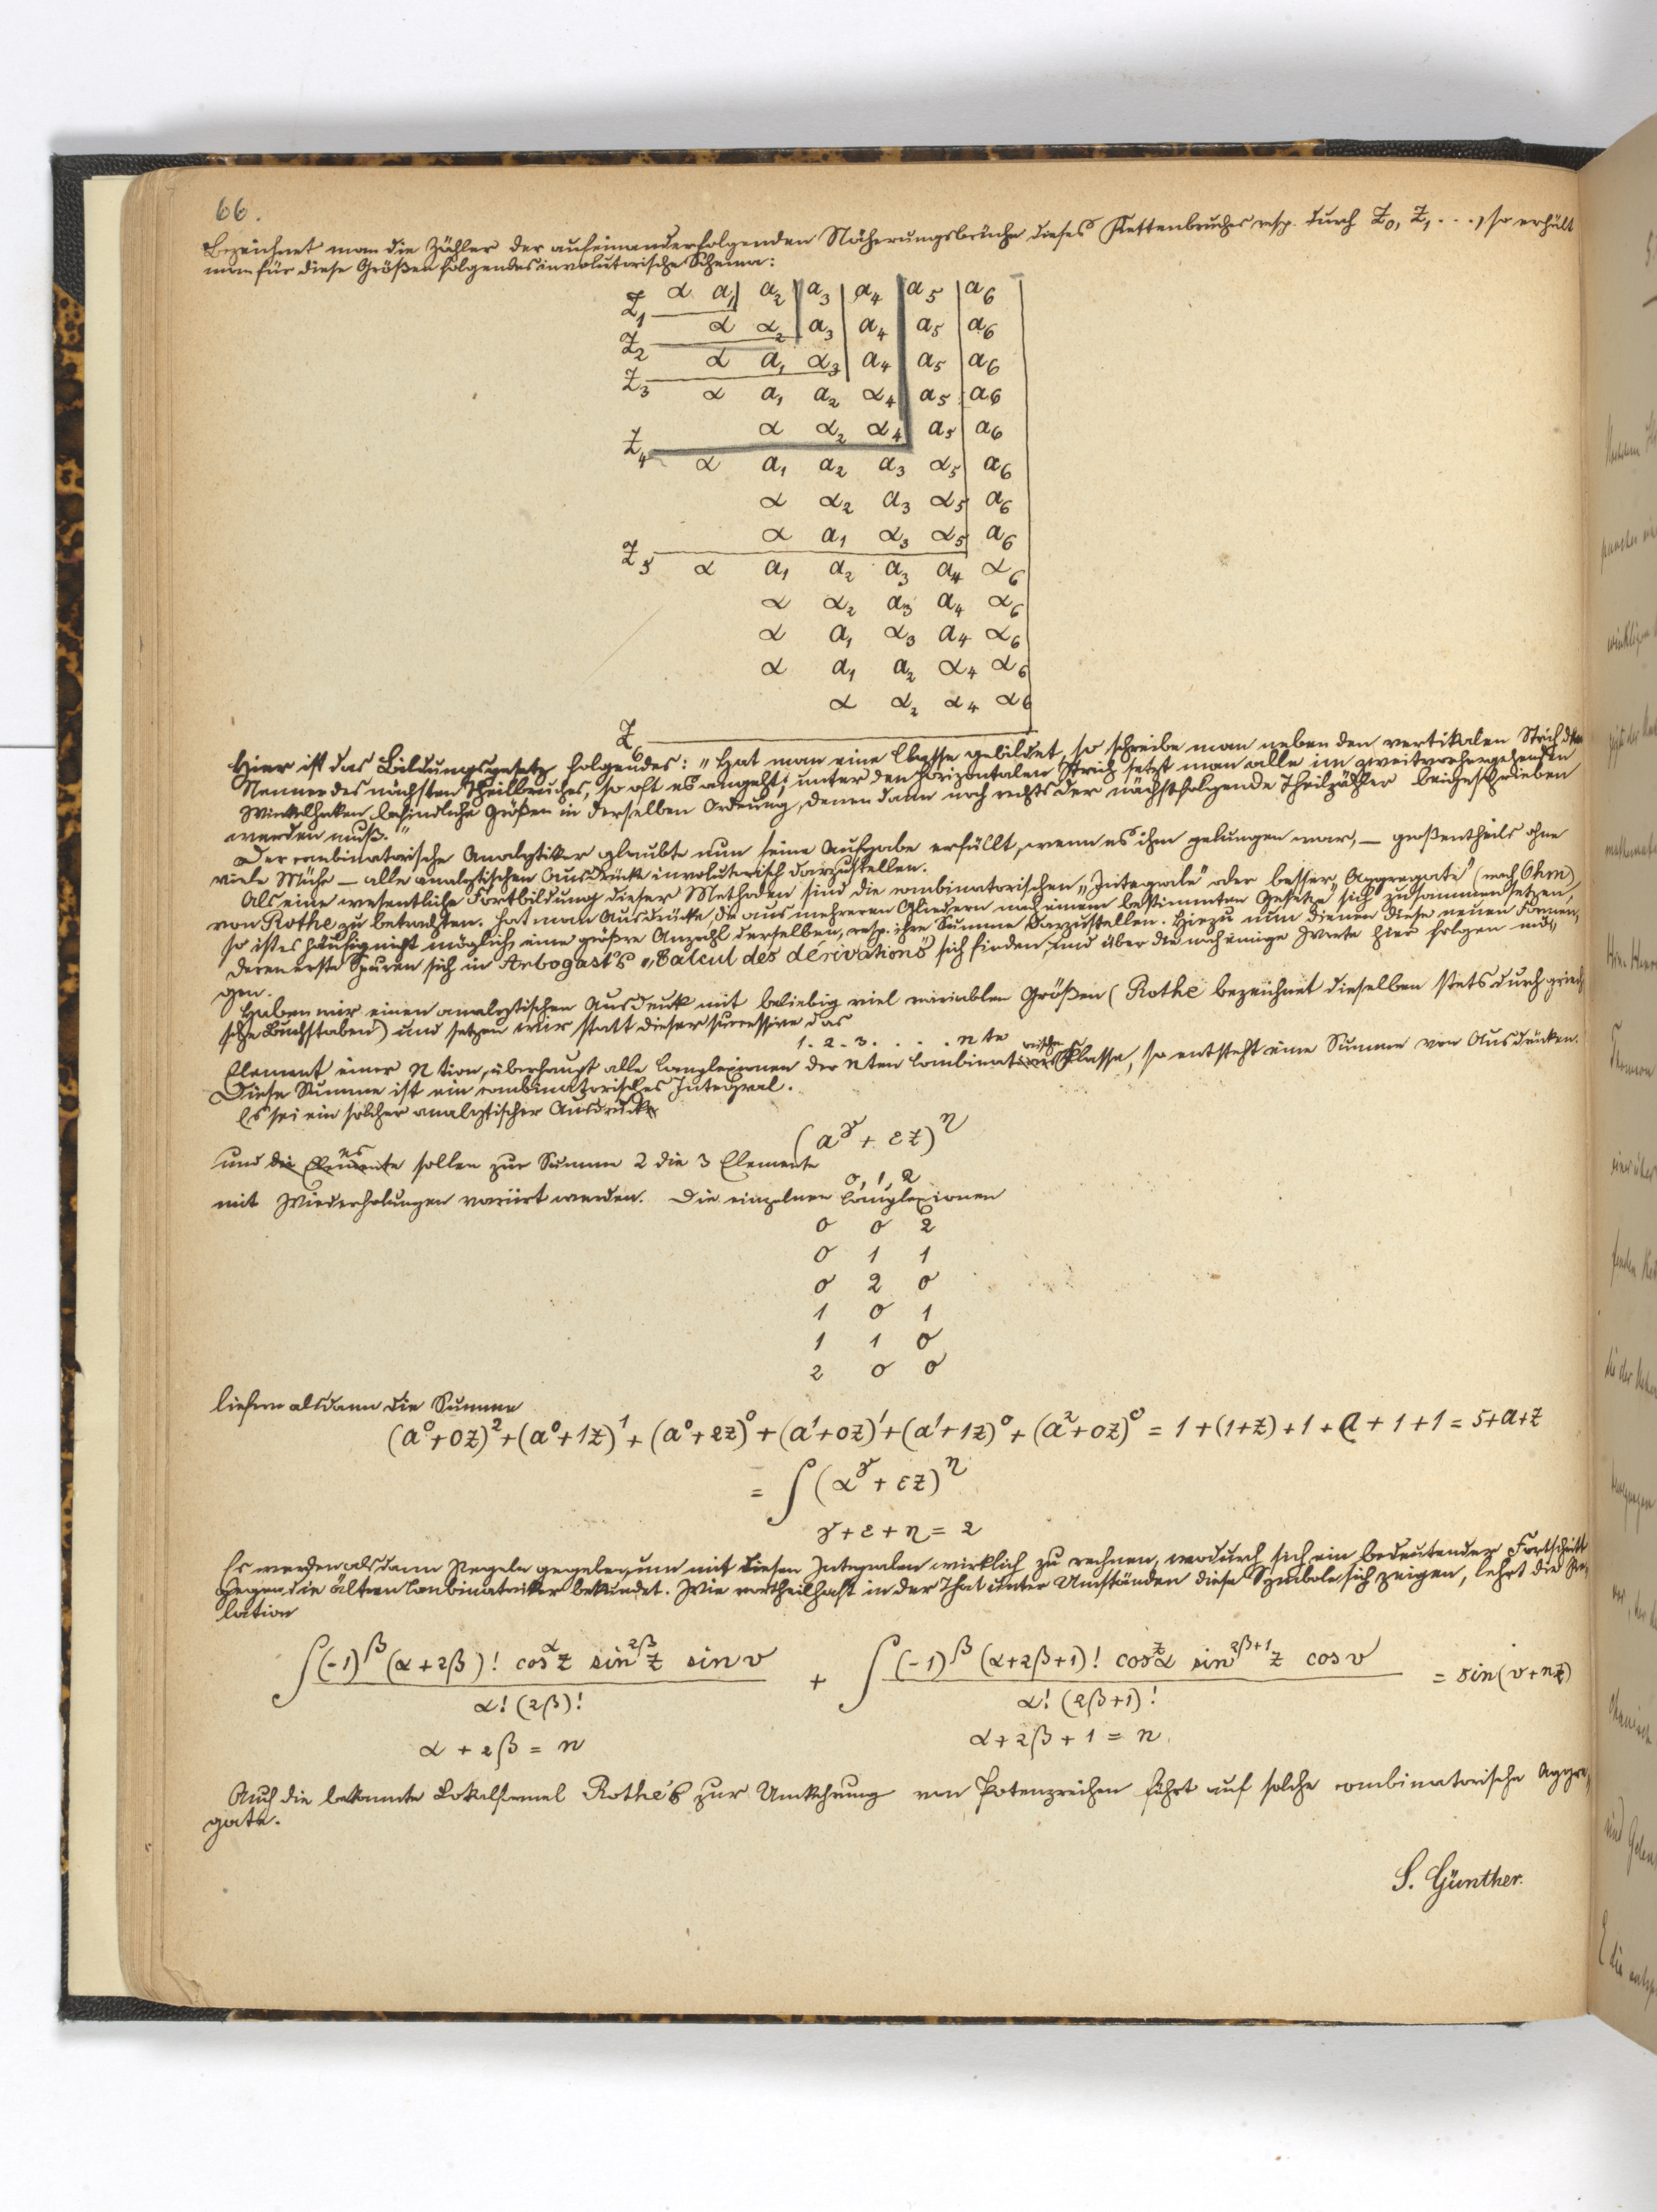 66.
Bezeichnet man die Zähler der aufeinanderfolgenden Näherungsbrüche dieses Kettenbruches resp. durch Z₀, Z₁ . . ., so erhält
man für diese Größen folgendes involutorische Schema:
Z₁ α a₁ a₂ a₃ a₄ a₅ a₆
Z₂ α α₂ a₃ a₄ a₅ a₆
Z₃ α a₁ α₃ a₄ a₅ a₆
α a₁ a₂ α₄ a₅ a₆
Z₄ α α₂ α₄ a₅ a₆
α a₁ a₂ a₃ α₅ a₆
α α₂ a₃ α₅ a₆
α a₁ α₃ α₅ a₆
Z₅ α a₁ a₂ a₃ a₄ α₆
α α₂ a₃ a₄ α₆
α a₁ α₃ a₄ α₆
α a₁ a₂ α₄ α₆
α α₂ α₄ α₆
Z₆
Hier ist das Bildungsgesetz folgendes: „Hat man eine Classe gebildet, so schreibe man neben den vertikalen Strich den
Nenner des nächsten Theilbruches, so oft es angeht; unter den horizontalen Strich setzt man alle im zweitvorhergehenden
Winkelhaken befindliche Größen in derselben Ordnung, denen dann noch rechts der nächstfolgende Theilzähler beigeschrieben
werden muß."
Der combinatorische Analytiker glaubte nun seine Aufgabe erfüllt, wenn es ihm gelungen war, — großentheils ohne
viele Mühe — alle analytischen Ausdrücke involutorisch darzustellen.
Als eine wesentliche Fortbildung dieser Methoden sind die combinatorischen „Integrale" oder besser „Aggregate" (nach Ohm)
von Rothe zu betrachten. Hat man Ausdrücke, die aus mehreren Gliedern nach einem bestimmten Gesetze sich zusammensetzen,
so ist es häufig nicht möglich eine größre Anzahl derselben, resp. ihre Summe darzustellen. Hiezu nun dienen diese neuen Formen,
deren erste Spuren sich in Arbogast's „Calcul des dérivations" sich finden, und über die noch einige Worte hier folgen mö-
gen.
Haben wir einen analytischen Ausdruck mit beliebig viel variablen Größen (Rothe bezeichnet dieselben stets durch griech
sche Buchstaben) und setzen wir statt dieser successive das
1. 2. 3. . . . . nte
Element einer ntion, überhaupt alle Complexionen der nten Combinatorische Classe, so entsteht eine Summe von Ausdrücken.
Diese Summe ist ein combinatorisches Integral.
Es sei ein solcher analytischer Ausdruck
(a^γ + εz)^η
und die Elemente es sollen zur Summe 2 die 3 Elemente
0, 1, 2
mit Wiederholungen variirt werden. Die einzelnen Complexionen
0 0 2
0 1 1
0 2 0
1 0 1
1 1 0
2 0 0
liefern alsdann die Summe
(a⁰+0z)²+(a⁰+1z)¹+(a⁰+2z)⁰+(a¹+0z)¹+(a¹+1z)⁰+(a²+0z)⁰ = 1+(1+z)+1+a+1+1 = 5+a+z
= ∫(α^γ + εz)^η
γ+ε+η = 2
Es werden alsdann Regeln gegeben, um mit diesen Integralen wirklich zu rechnen, wodurch sich ein bedeutender Fortschritt
gegen die ältren Combinatoriker bekundet. Wie vortheilhaft in der That unter Umständen diese Symbole sich zeigen, lehrt die Re-
lation
∫ (-1)^β (α+2β)! cos^α z sin^2β z sin v + ∫ (-1)^β (α+2β+1)! cos^z α sin^2β+1 z cos v = sin(v+nz)
α! (2β)! α! (2β+1)!
α + 2β = n α+2β+1 = n.
Auch die bekannte Lokalformel Rothe's zur Umkehrung von Potenzreihen führt auf solche combinatorische Aggre-
gate.
S. Günther.